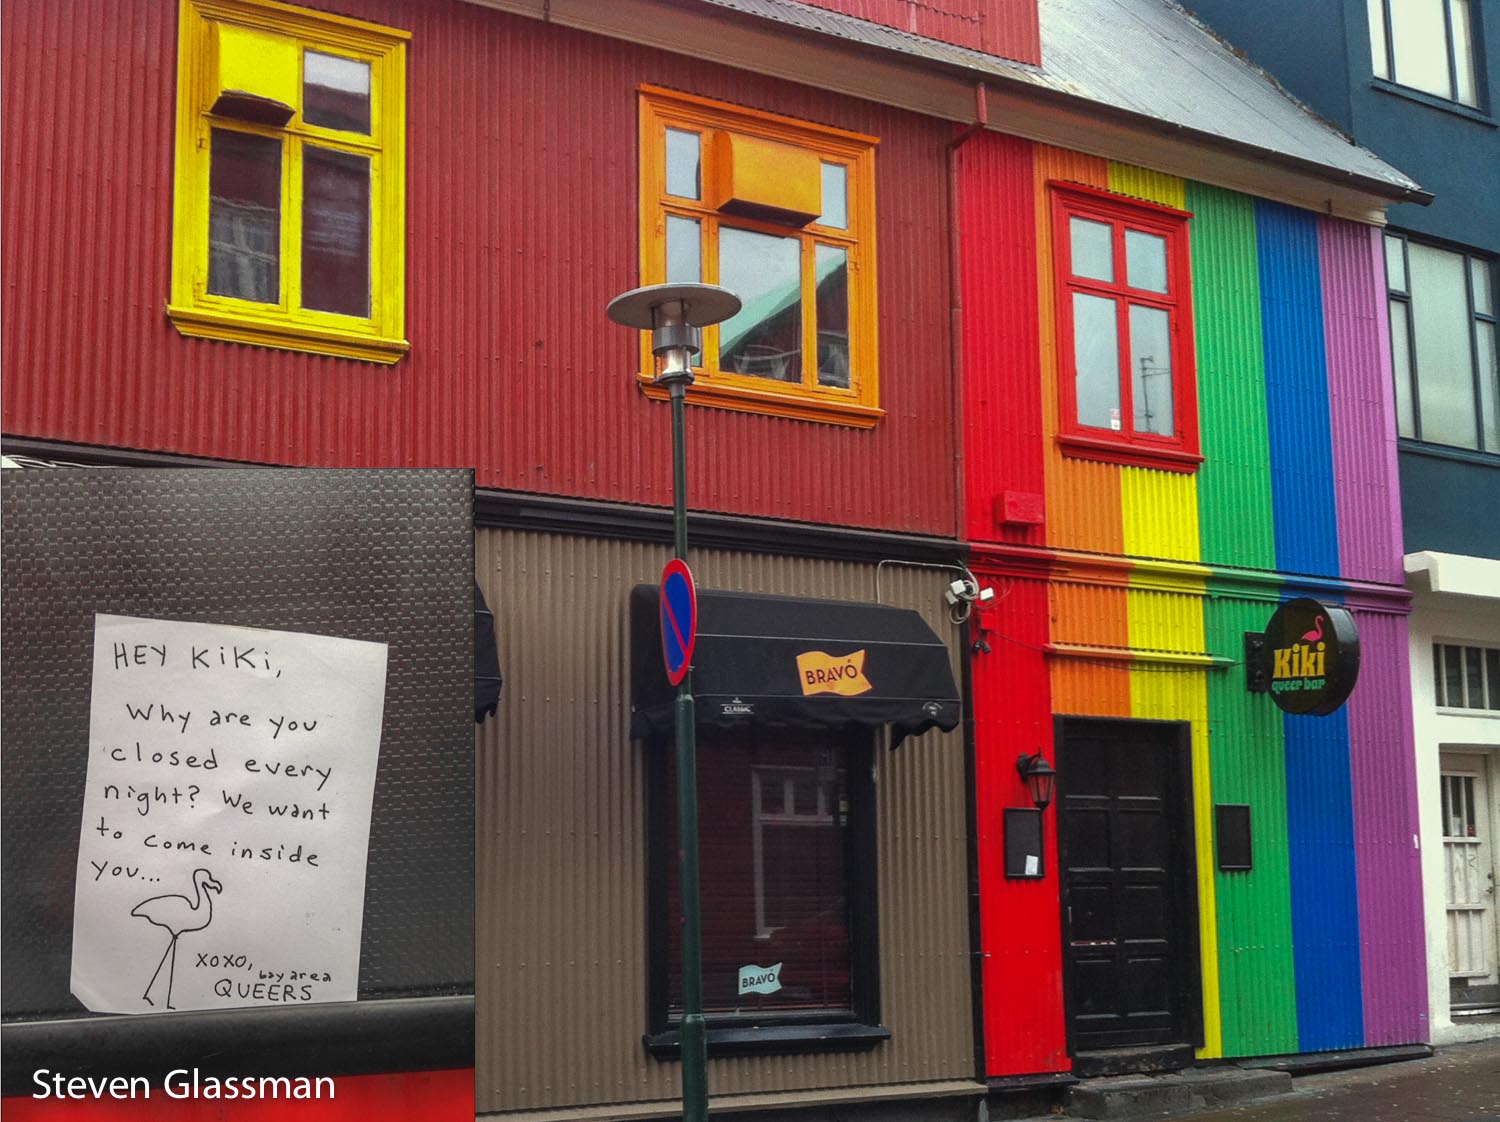 HEY KiKi,
Why are you
closed every
night? We want
to come inside
you...
xoxo,
bay area
QUEERS
Steven Glassman
BRAVÓ
CLASSIC
BRAVÓ
Kiki
queer bar